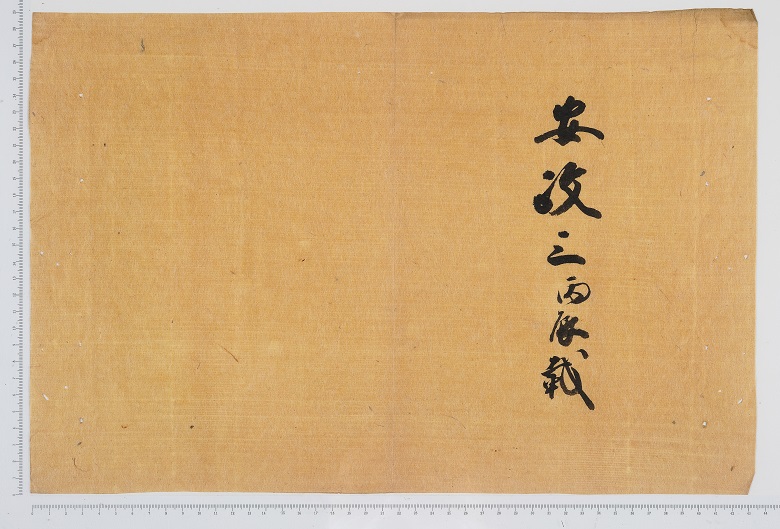 安政三丙辰歳